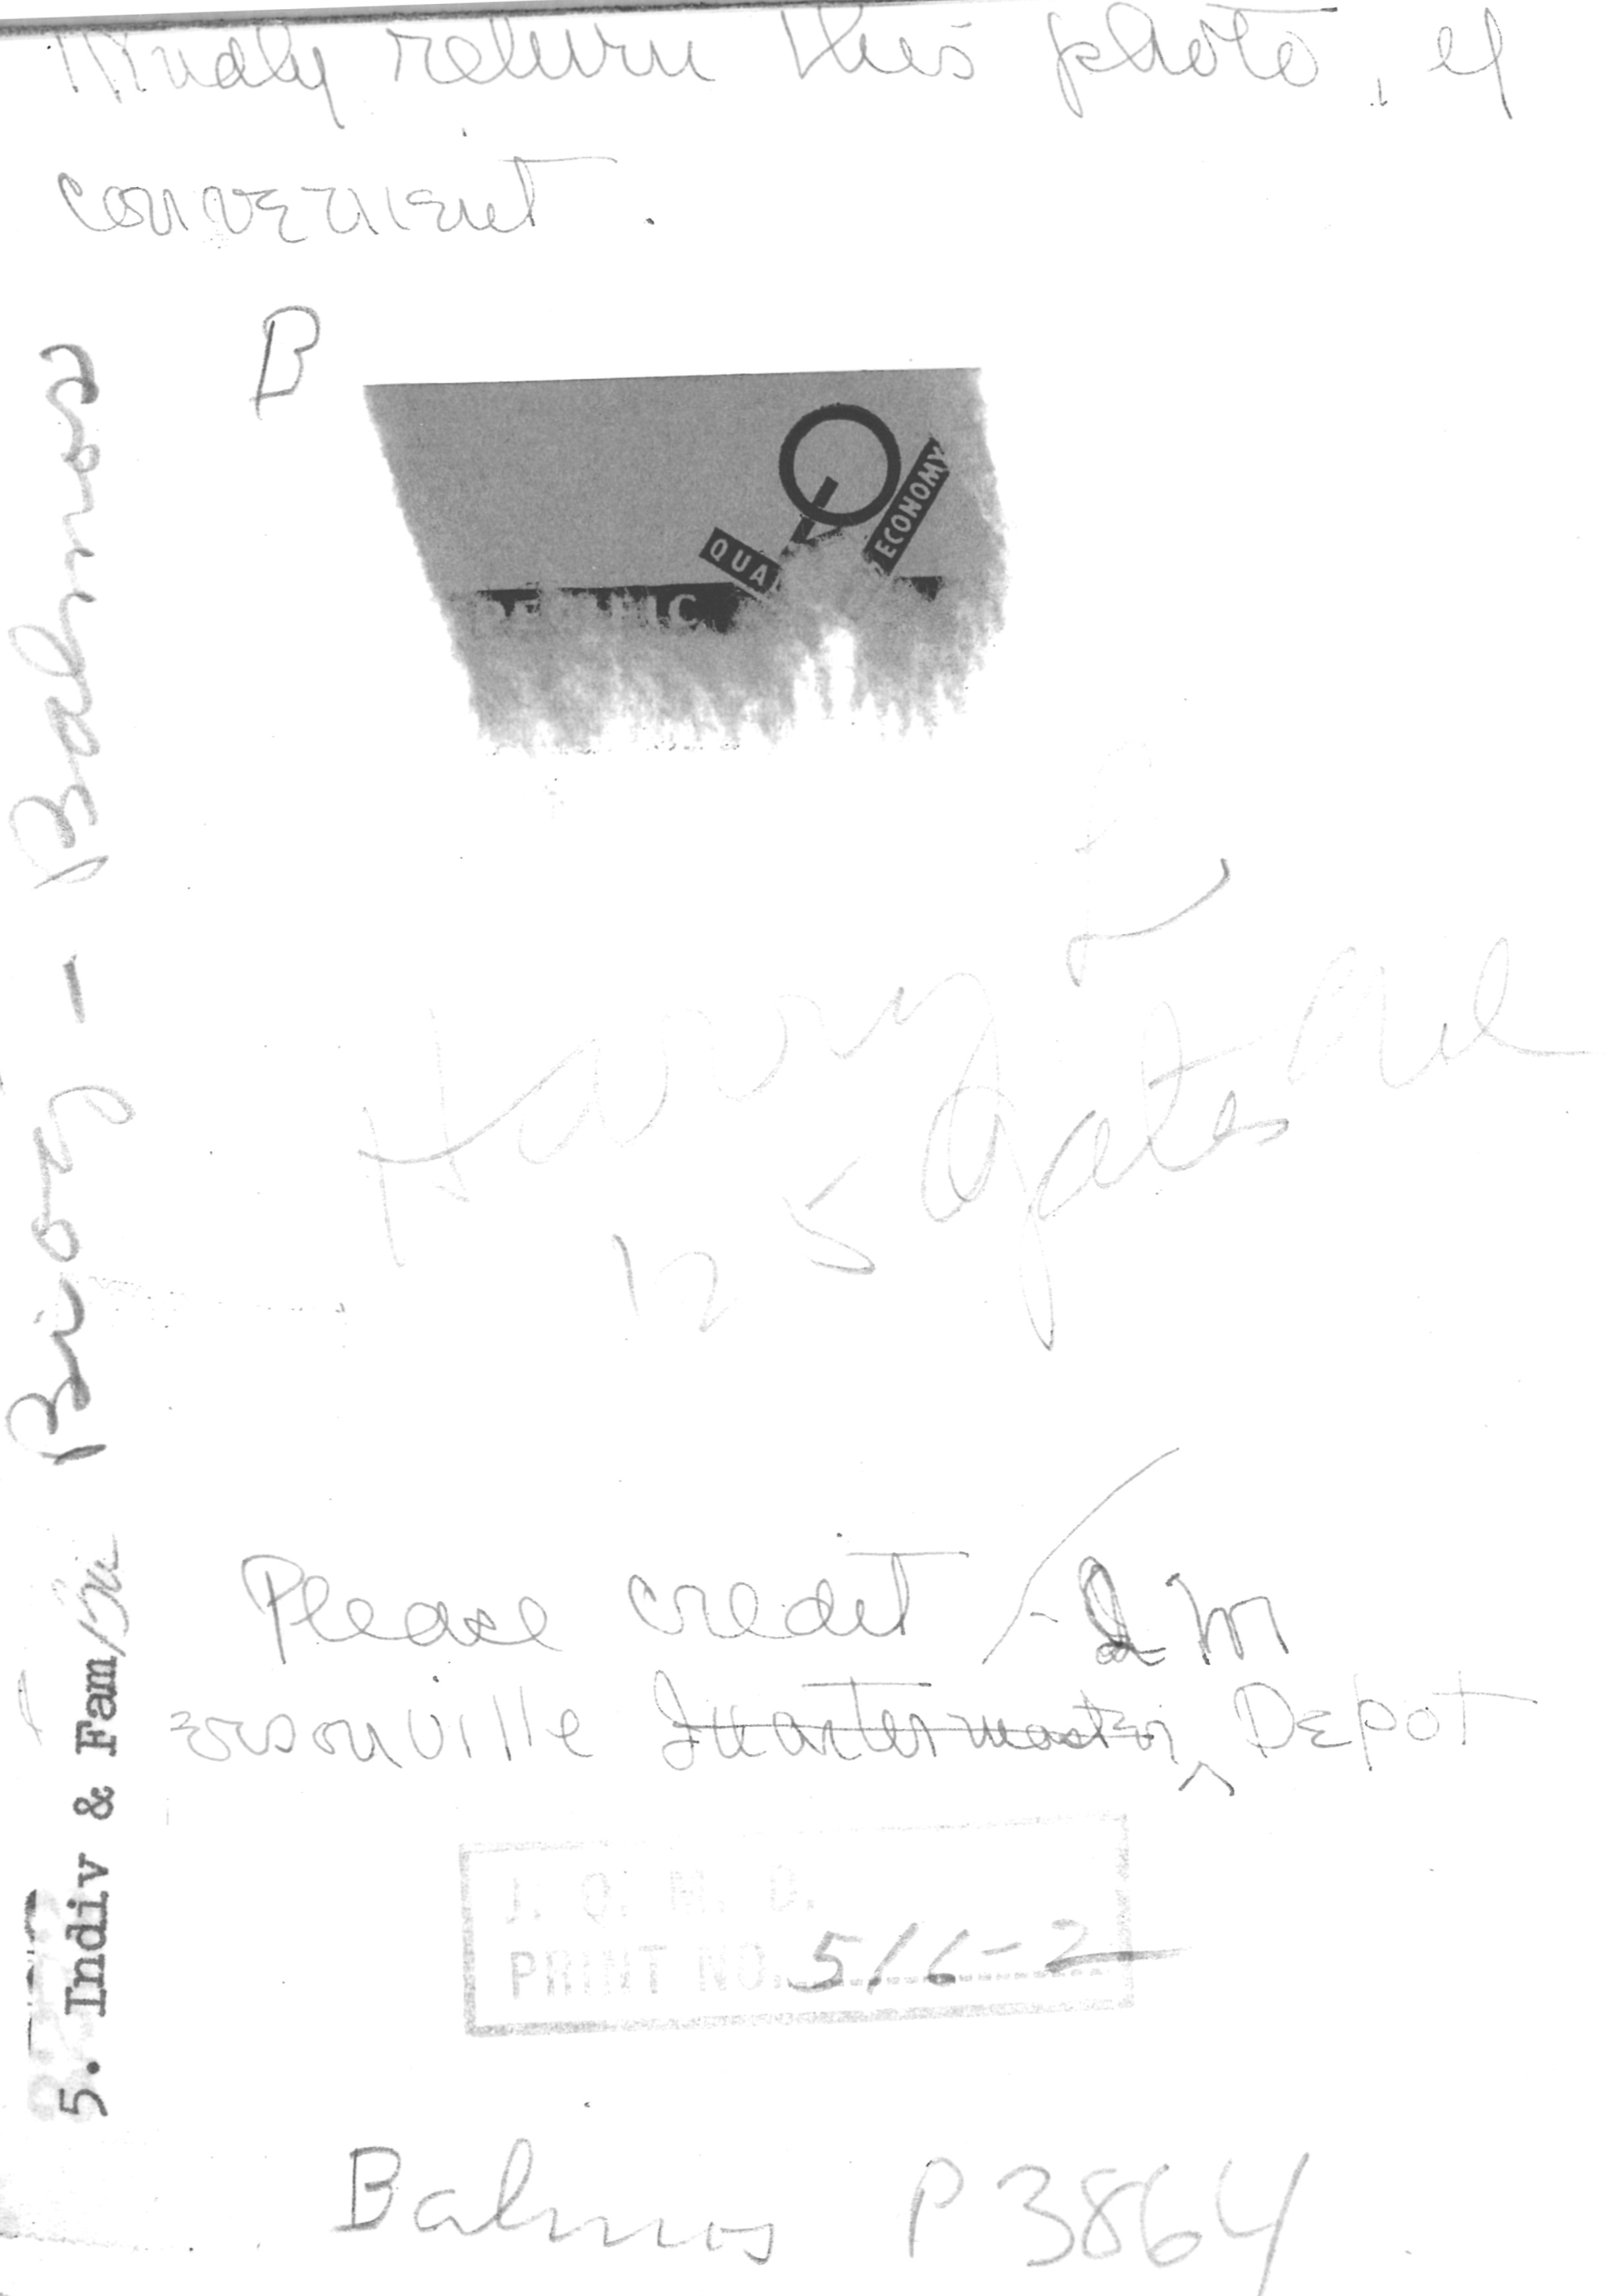 Kindly return this photo, if
convenient.
B
QUA
ECONOMY
Harry
125 Gates Ave
Please credit - QM
ersonville Quartermaster Depot
J. Q. M. D.
PRINT NO. 516-2
Balmos P3864
5. Indiv & Fam/Bi Biog - Balmos